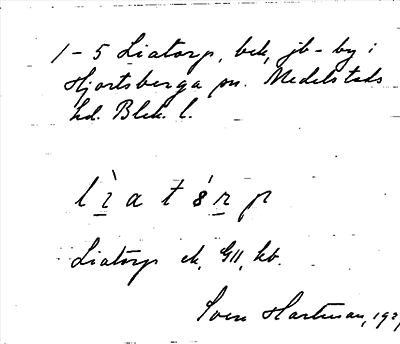 1-5 Liatorp, bek, jb-by i
Hjortsberga sn. Medelstads
hd. Blek. l.
lìatórp
Liatorp ek, GII, kb.
Sven Hartman, 193